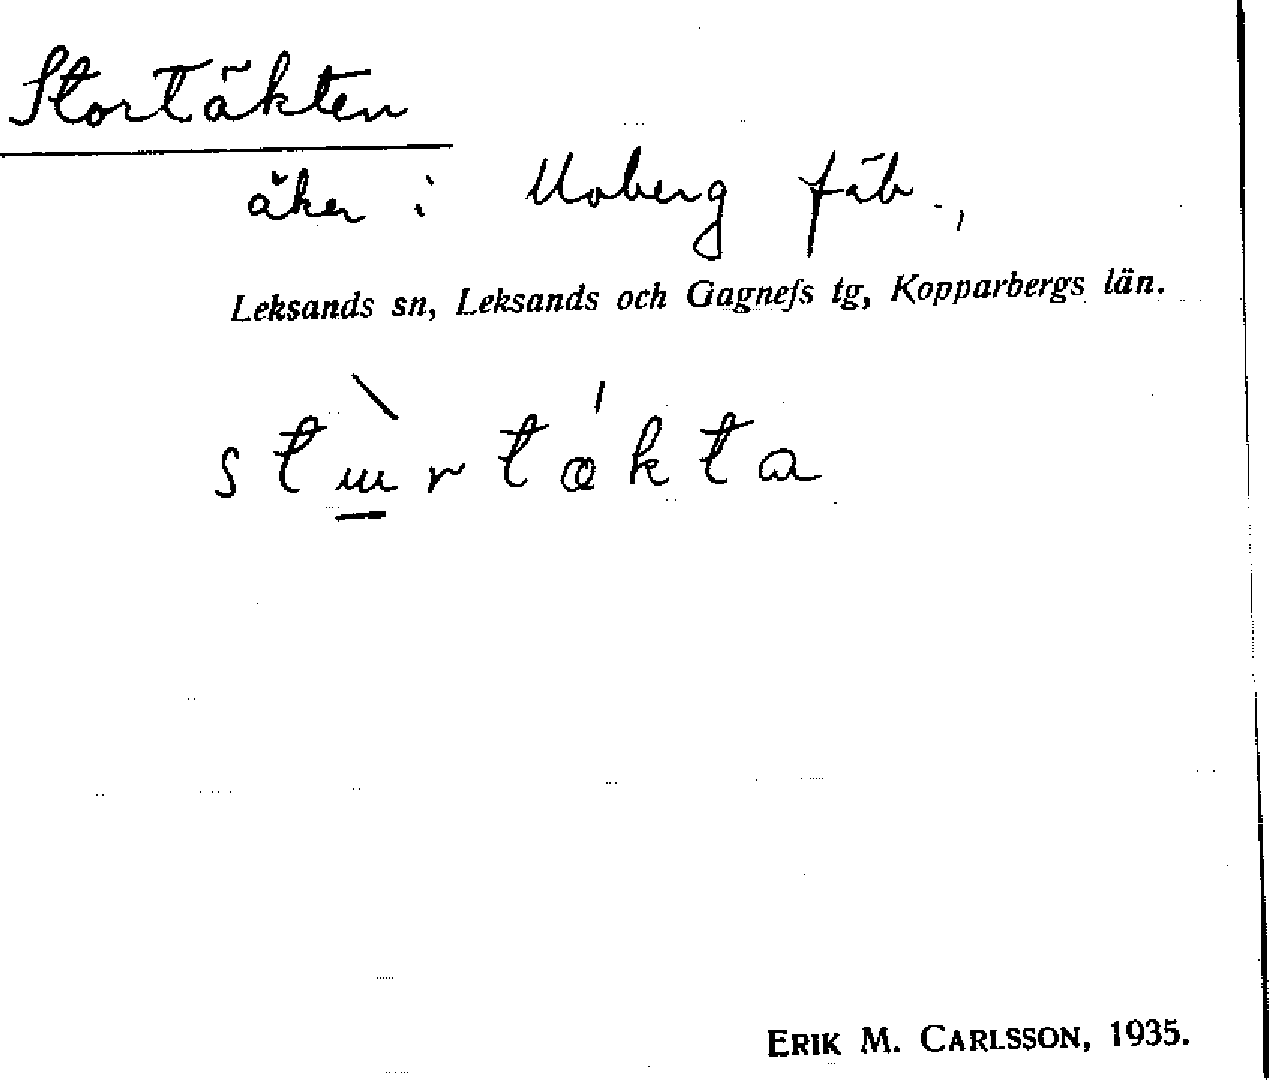 Stortäkten
åker i Moberg fäb.,
Leksands sn, Leksands och Gagnefs tg, Kopparbergs län.
ERIK M. CARLSSON, 1935.